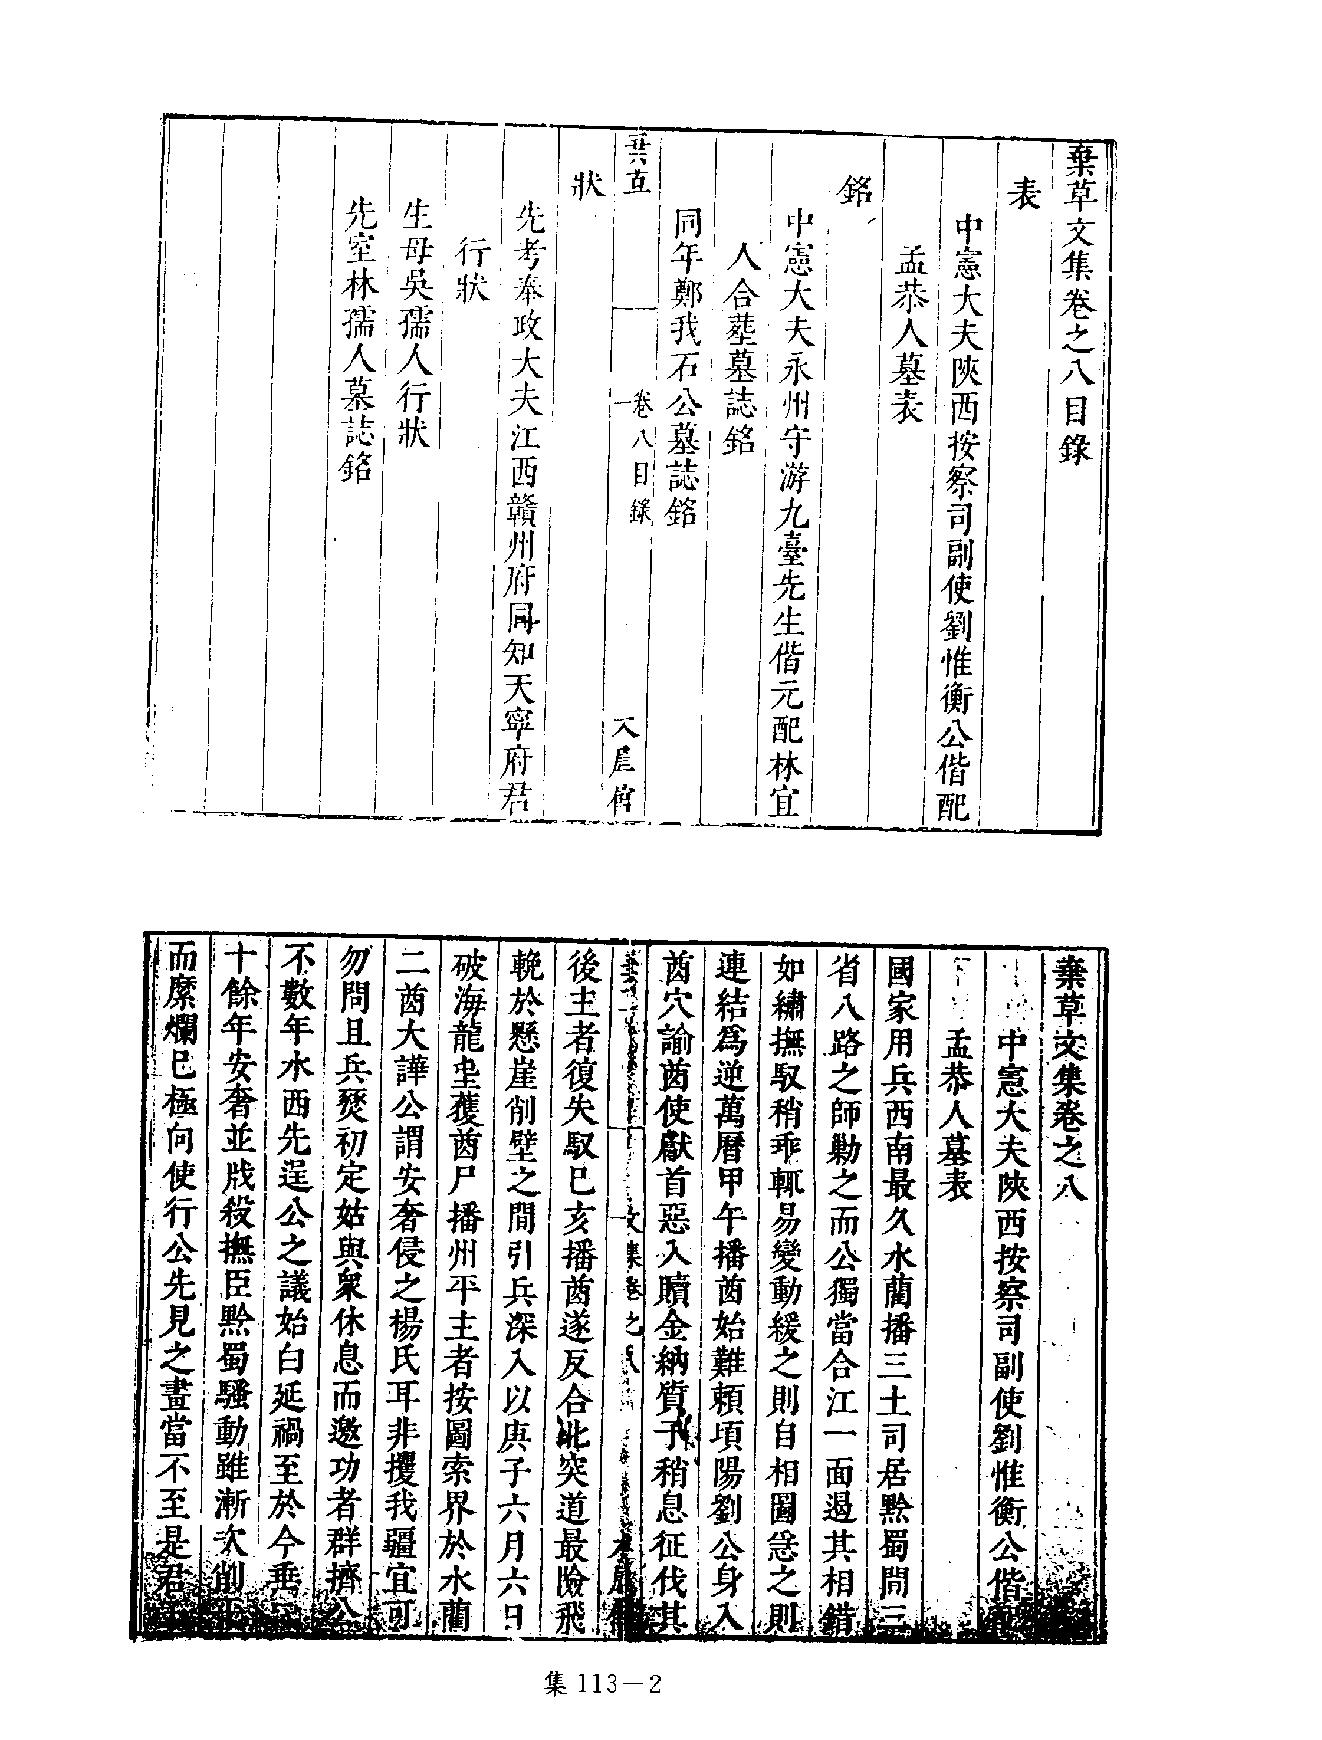 棄草文集卷之八目錄
表
中憲大夫陝西按察司副使劉惟衡公偕配
孟恭人墓表
銘
中憲大夫永州守游九臺先生偕元配林宜
人合葬墓誌銘
同年鄭我石公墓誌銘
卷八目錄
一
狀
先考奉政大夫江西贛州府同知天寧府君
行狀
生母吳孺人行狀
先室林孺人墓誌銘
棄草文集卷之八
中憲大夫陝西按察司副使劉惟衡公偕
孟恭人墓表
國家用兵西南最久水藺播三土司居黔蜀間三
省八路之師勦之而公獨當合江一面過其相錯
如繡撫馭稍乖輒易變動緩之則自相圖急之則
連結為逆萬曆甲午播酋始難賴項陽劉公身入
酋穴諭酋使獻首惡入贖金納質子稍息征伐其
文集卷之八
後主者復失馭巳亥播酋遂反合此突道最險飛
輓於懸崖削壁之間引兵深入以庚子六月六日
破海龍坐獲酋尸播州平主者按圖索界於水藺
二酋大譁公謂安奢侵之楊氏耳非攫我疆宜可
勿問且兵燹初定姑與衆休息而邀功者群擠公
不數年水西先逞公之議始白延禍至於今垂
十餘年安奢並戕殺撫臣黔蜀騷動雖漸次削
而糜爛巳極向使行公先見之畫當不至是君
集 113－2